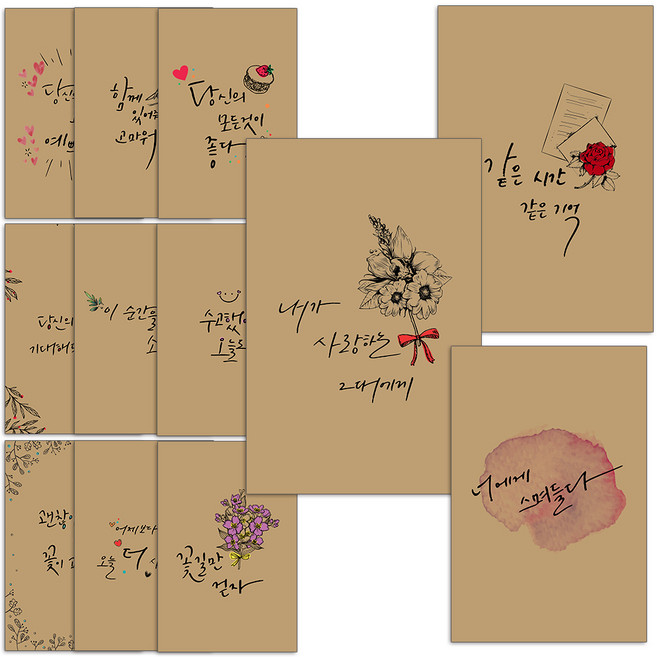 당신
예쁘
함께
있어주
고마워
당신의
모든것이
좋다
같은 시간
같은 기억
당신의
기대해도
이 순간을
소
수고했어
오늘도
내가
사랑하는
그대에게
너에게
스며들다
괜찮아
꽃이 피
어제보다
오늘 더 사
꽃길만
걷자